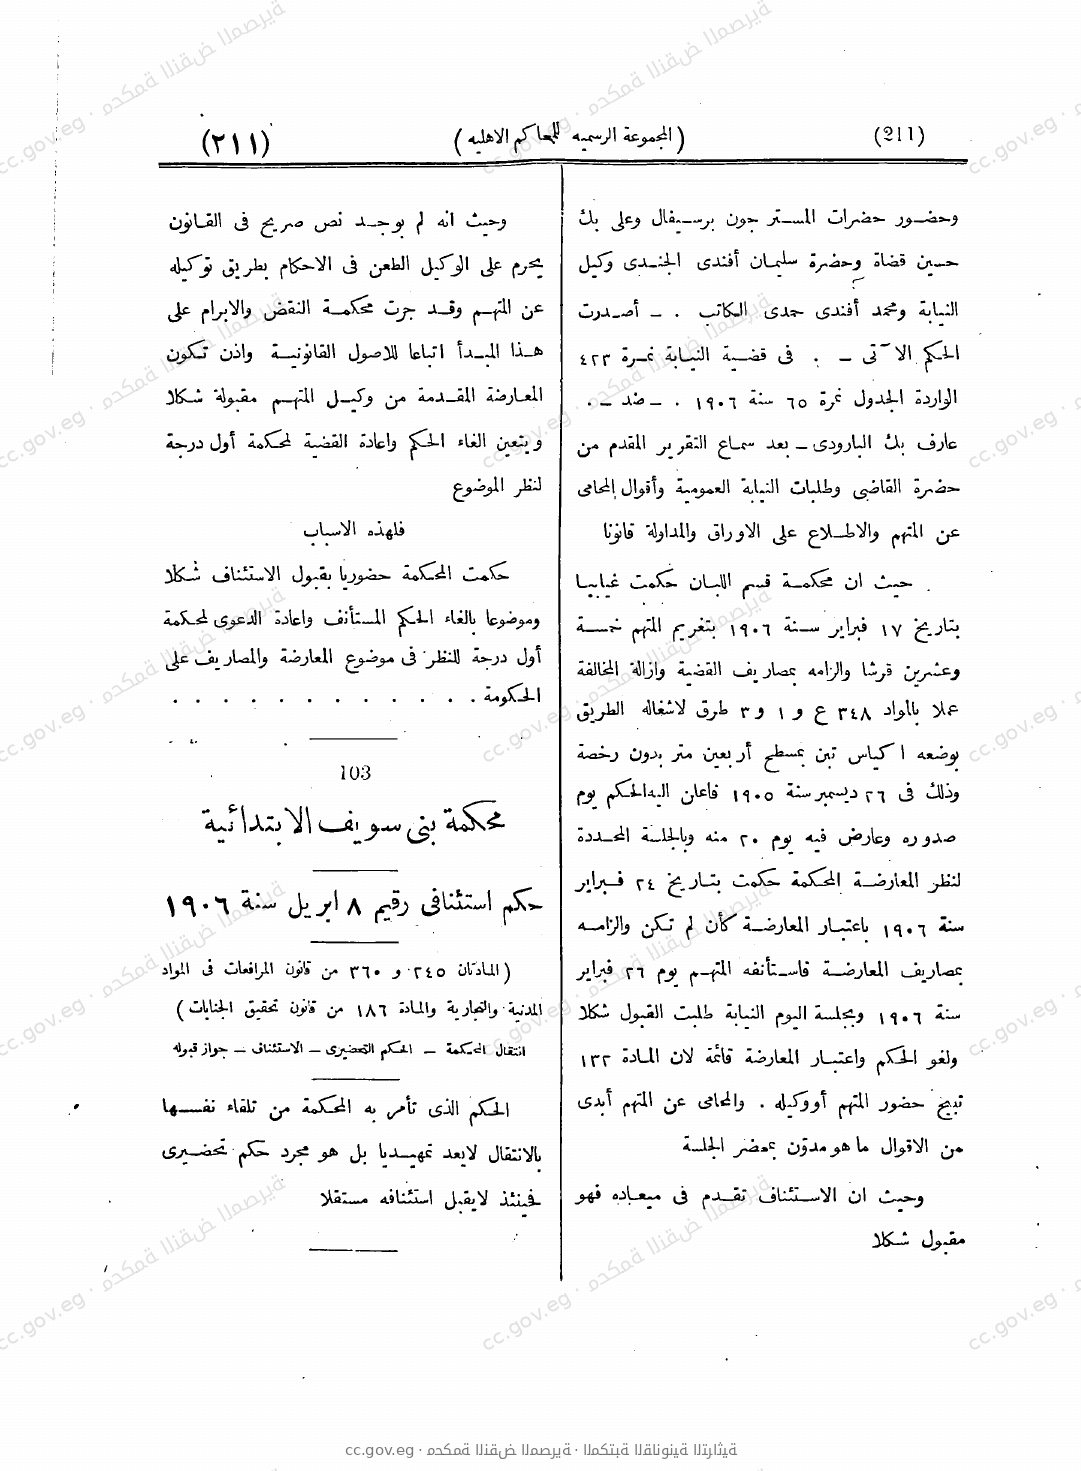 (211)
( المجموعة الرسميه للمحاكم الاهليه )
(٢١١)
وحضور حضرات المستر جون برسيفال وعلى بك
حسين قضاة وحضرة سليمان أفندى الجندى وكيل
النيابة ومحمد أفندى حمدى الكاتب . ــ أصدرت
الحكم الآتى ــ . فى قضية النيابة نمرة ٤٢٣
الواردة الجدول نمرة ٦٥ سنة ١٩٠٦ . ــ ضد ــ .
عارف بك البارودى ــ بعد سماع التقرير المقدم من
حضرة القاضى وطلبات النيابة العمومية وأقوال المحامى
عن المتهم والاطلاع على الاوراق والمداولة قانونا
حيث ان محكمة قسم اللبان حكمت غيابيا
بتاريخ ١٧ فبراير سنة ١٩٠٦ بتغريم المتهم خمسة
وعشرين قرشا والزامه بمصاريف القضية وازالة المخالفة
عملا بالمواد ٣٤٨ ع و ١ و ٣ طرق لاشغاله الطريق
بوضعه اكياس تبن بمسطح أربعين متر بدون رخصة
وذلك فى ٢٦ ديسمبر سنة ١٩٠٥ فاعلن اليه الحكم يوم
صدوره وعارض فيه يوم ٢٠ منه وبالجلسة المحددة
لنظر المعارضة المحكمة حكمت بتاريخ ٢٤ فبراير
سنة ١٩٠٦ باعتبار المعارضة كأن لم تكن والزامه
بمصاريف المعارضة فاستأنفه المتهم يوم ٢٦ فبراير
سنة ١٩٠٦ وبجلسة اليوم النيابة طلبت القبول شكلا
ولغو الحكم واعتبار المعارضة قائمة لان المادة ١٣٢
تبيح حضور المتهم أو وكيله . والمحامى عن المتهم أبدى
من الاقوال ما هو مدوّن بمحضر الجلسة
وحيث ان الاستئناف تقدم فى ميعاده فهو
مقبول شكلا
وحيث انه لم يوجد نص صريح فى القانون
يحرم على الوكيل الطعن فى الاحكام بطريق توكيله
عن المتهم وقد جرت محكمة النقض والابرام على
هذا المبدأ اتباعا للاصول القانونية واذن تكون
المعارضة المقدمة من وكيل المتهم مقبولة شكلا
ويتعين الغاء الحكم واعادة القضية لمحكمة أول درجة
لنظر الموضوع
فلهذه الاسباب
حكمت المحكمة حضوريا بقبول الاستئناف شكلا
وموضوعا بالغاء الحكم المستأنف واعادة الدعوى لمحكمة
أول درجة للنظر فى موضوع المعارضة والمصاريف على
الحكومة . . . . . . . . . . .
103
محكمة بنى سويف الابتدائية
حكم استئنافى رقيم ٨ ابريل سنة ١٩٠٦
( المادتان ٢٤٥ و ٣٦٠ من قانون المرافعات فى المواد
المدنية والتجارية والمادة ١٨٦ من قانون تحقيق الجنايات )
انتقال المحكمة ــ الحكم التحضيرى ــ الاستئناف ــ جواز قبوله
الحكم الذى تأمر به المحكمة من تلقاء نفسها
بالانتقال لايعد تمهيديا بل هو مجرد حكم تحضيرى
فحينئذ لايقبل استئنافه مستقلا
cc.gov.eg · محكمة النقض المصرية · المكتبة القانونية التراثية